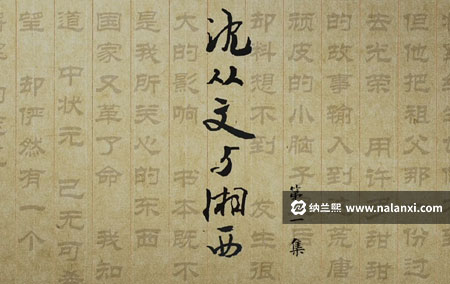 沈从文与湘西
第 集
但他把祖父那 份过
去光荣 用许 甜甜
的故事输入到 唐
顽皮的小脑子
却料想不到 发生很
大的影响 书本既不
是我所关心的东西
国家又革了命 我知
道 中状元 已无可
望 却俨然有 个
纳兰熙 www.nalanxi.com